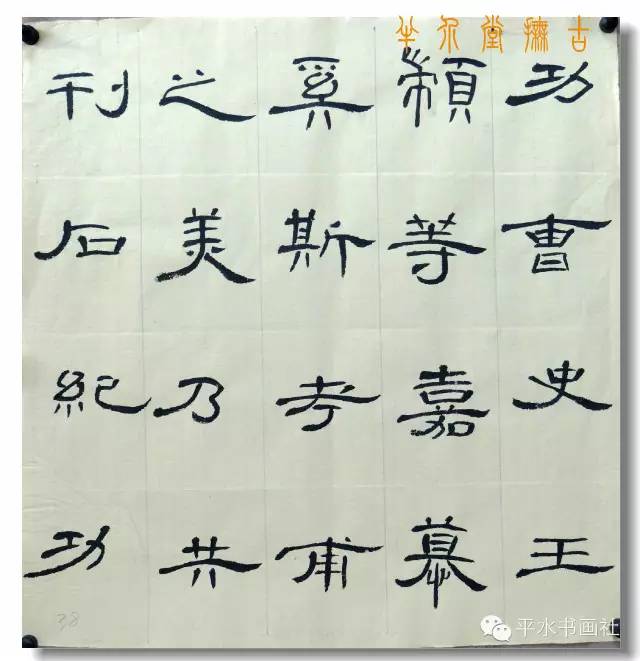 功曹史王
顓等嘉慕
奚斯考甫
之美乃共
刊石紀功
38
平水书画社